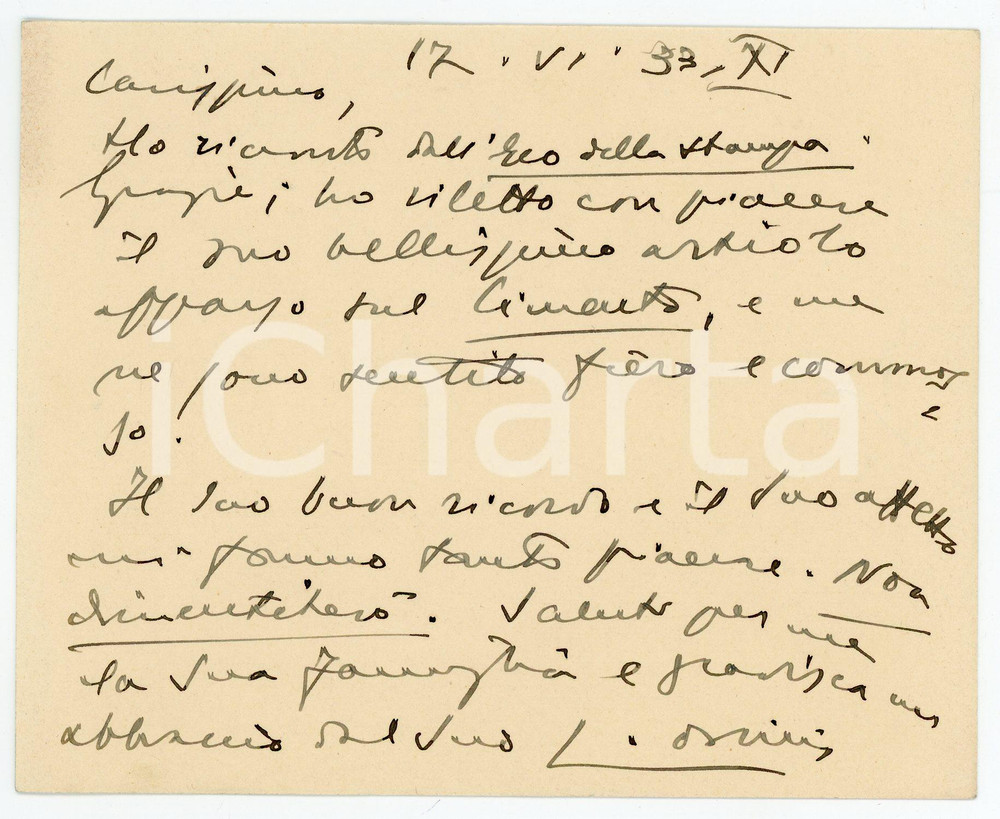 17 . VI . 33, XI
Carissimo,
Ho ricevuto dall'Eco della Stampa.
Grazie; ho riletto con piacere
il suo bellissimo articolo
apparso sul Cimento, e me
ne sono sentito fiero e commos
so.
Il Suo buon ricordo e il Suo affetto
mi fanno tanto piacere. Non
dimenticherò. Saluti per me
la Sua famiglia e gradisca un
abbraccio dal Suo
iCharta